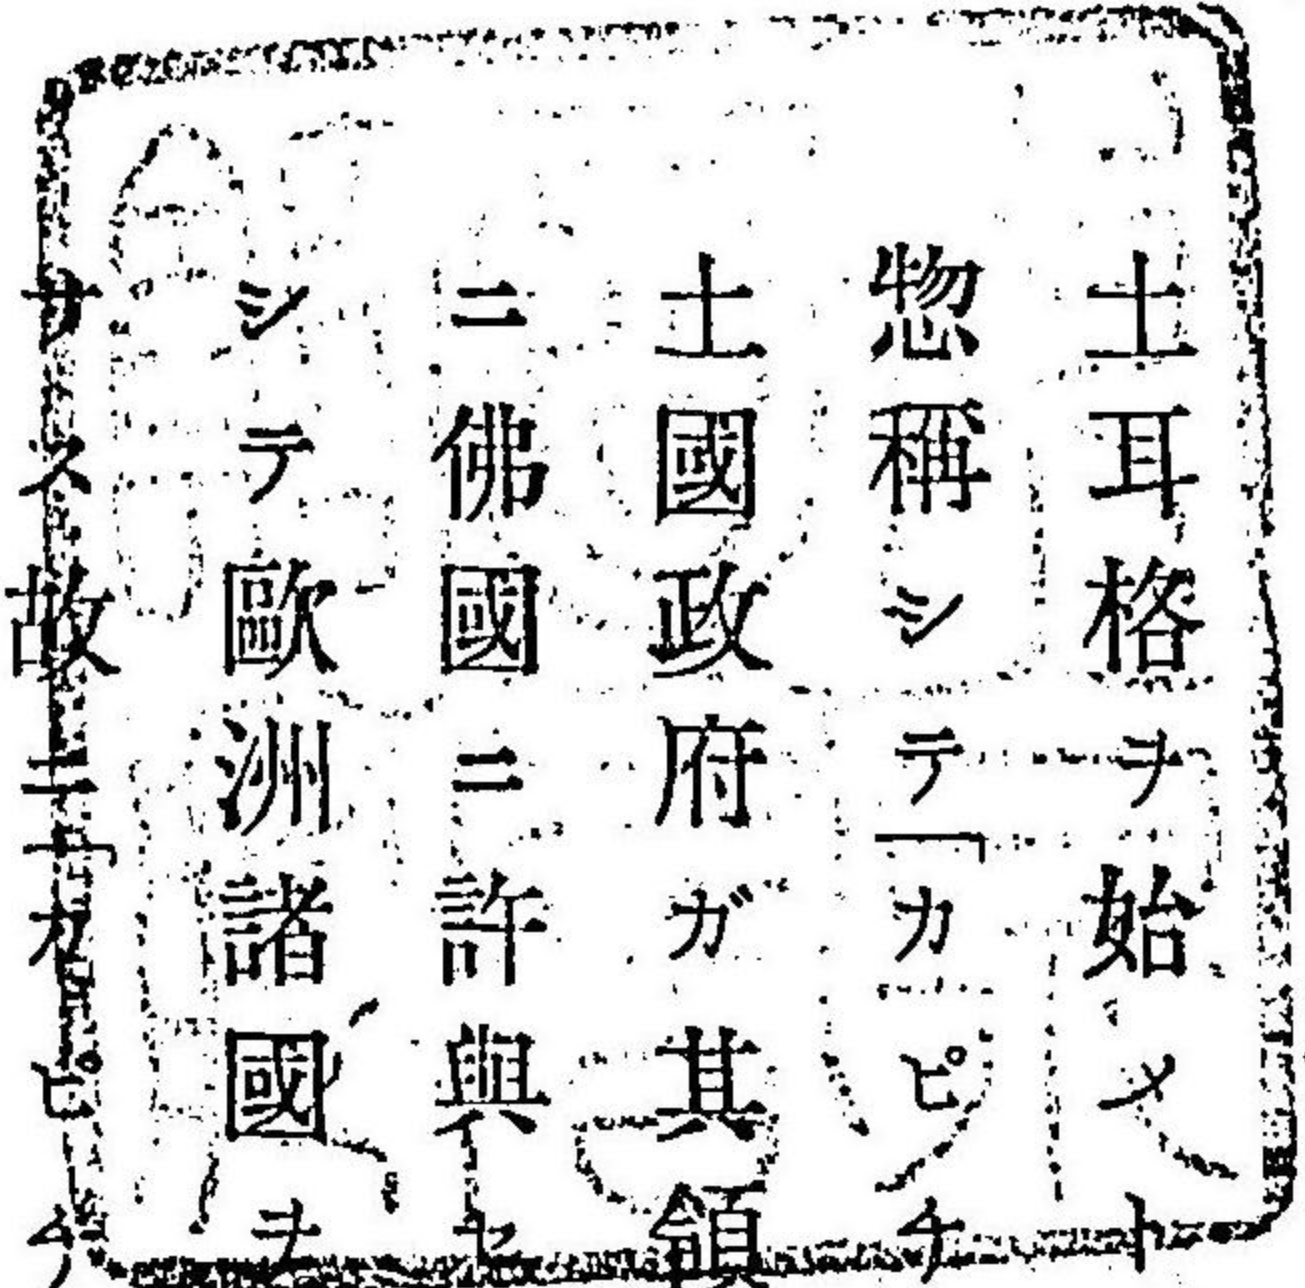 土耳格ヲ始メト
惣稱シテ「カピチ
土國政府ガ其領
ニ佛國ニ許與セ
シテ歐洲諸國ヲ
サス故ニ「カピチ